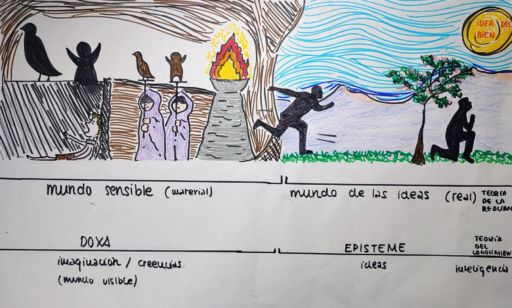 IDEA DEL
BIEN
mundo sensible (material)
mundo de las ideas (real)
TEORÍA
DE LA
DOXA
EPISTEME
TEORÍA
DEL
imaginación / creencias
(mundo visible)
ideas
inteligencia